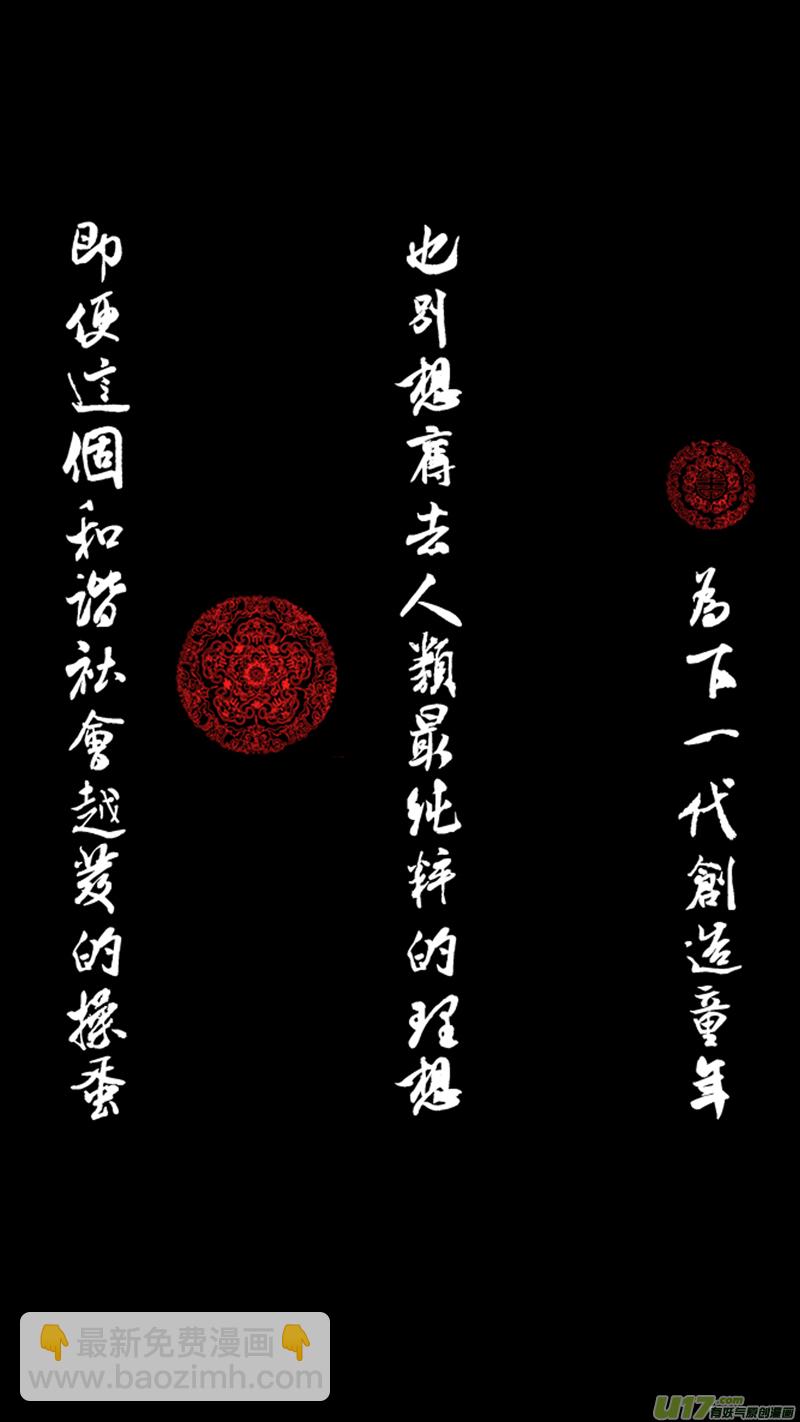 即便這個和谐社會越裝的操蛋
也别想奪去人類最纯粹的理想
為下一代創造童年
👇最新免费漫画👇
www.baozimh.com
U17.com
有妖气原创漫画